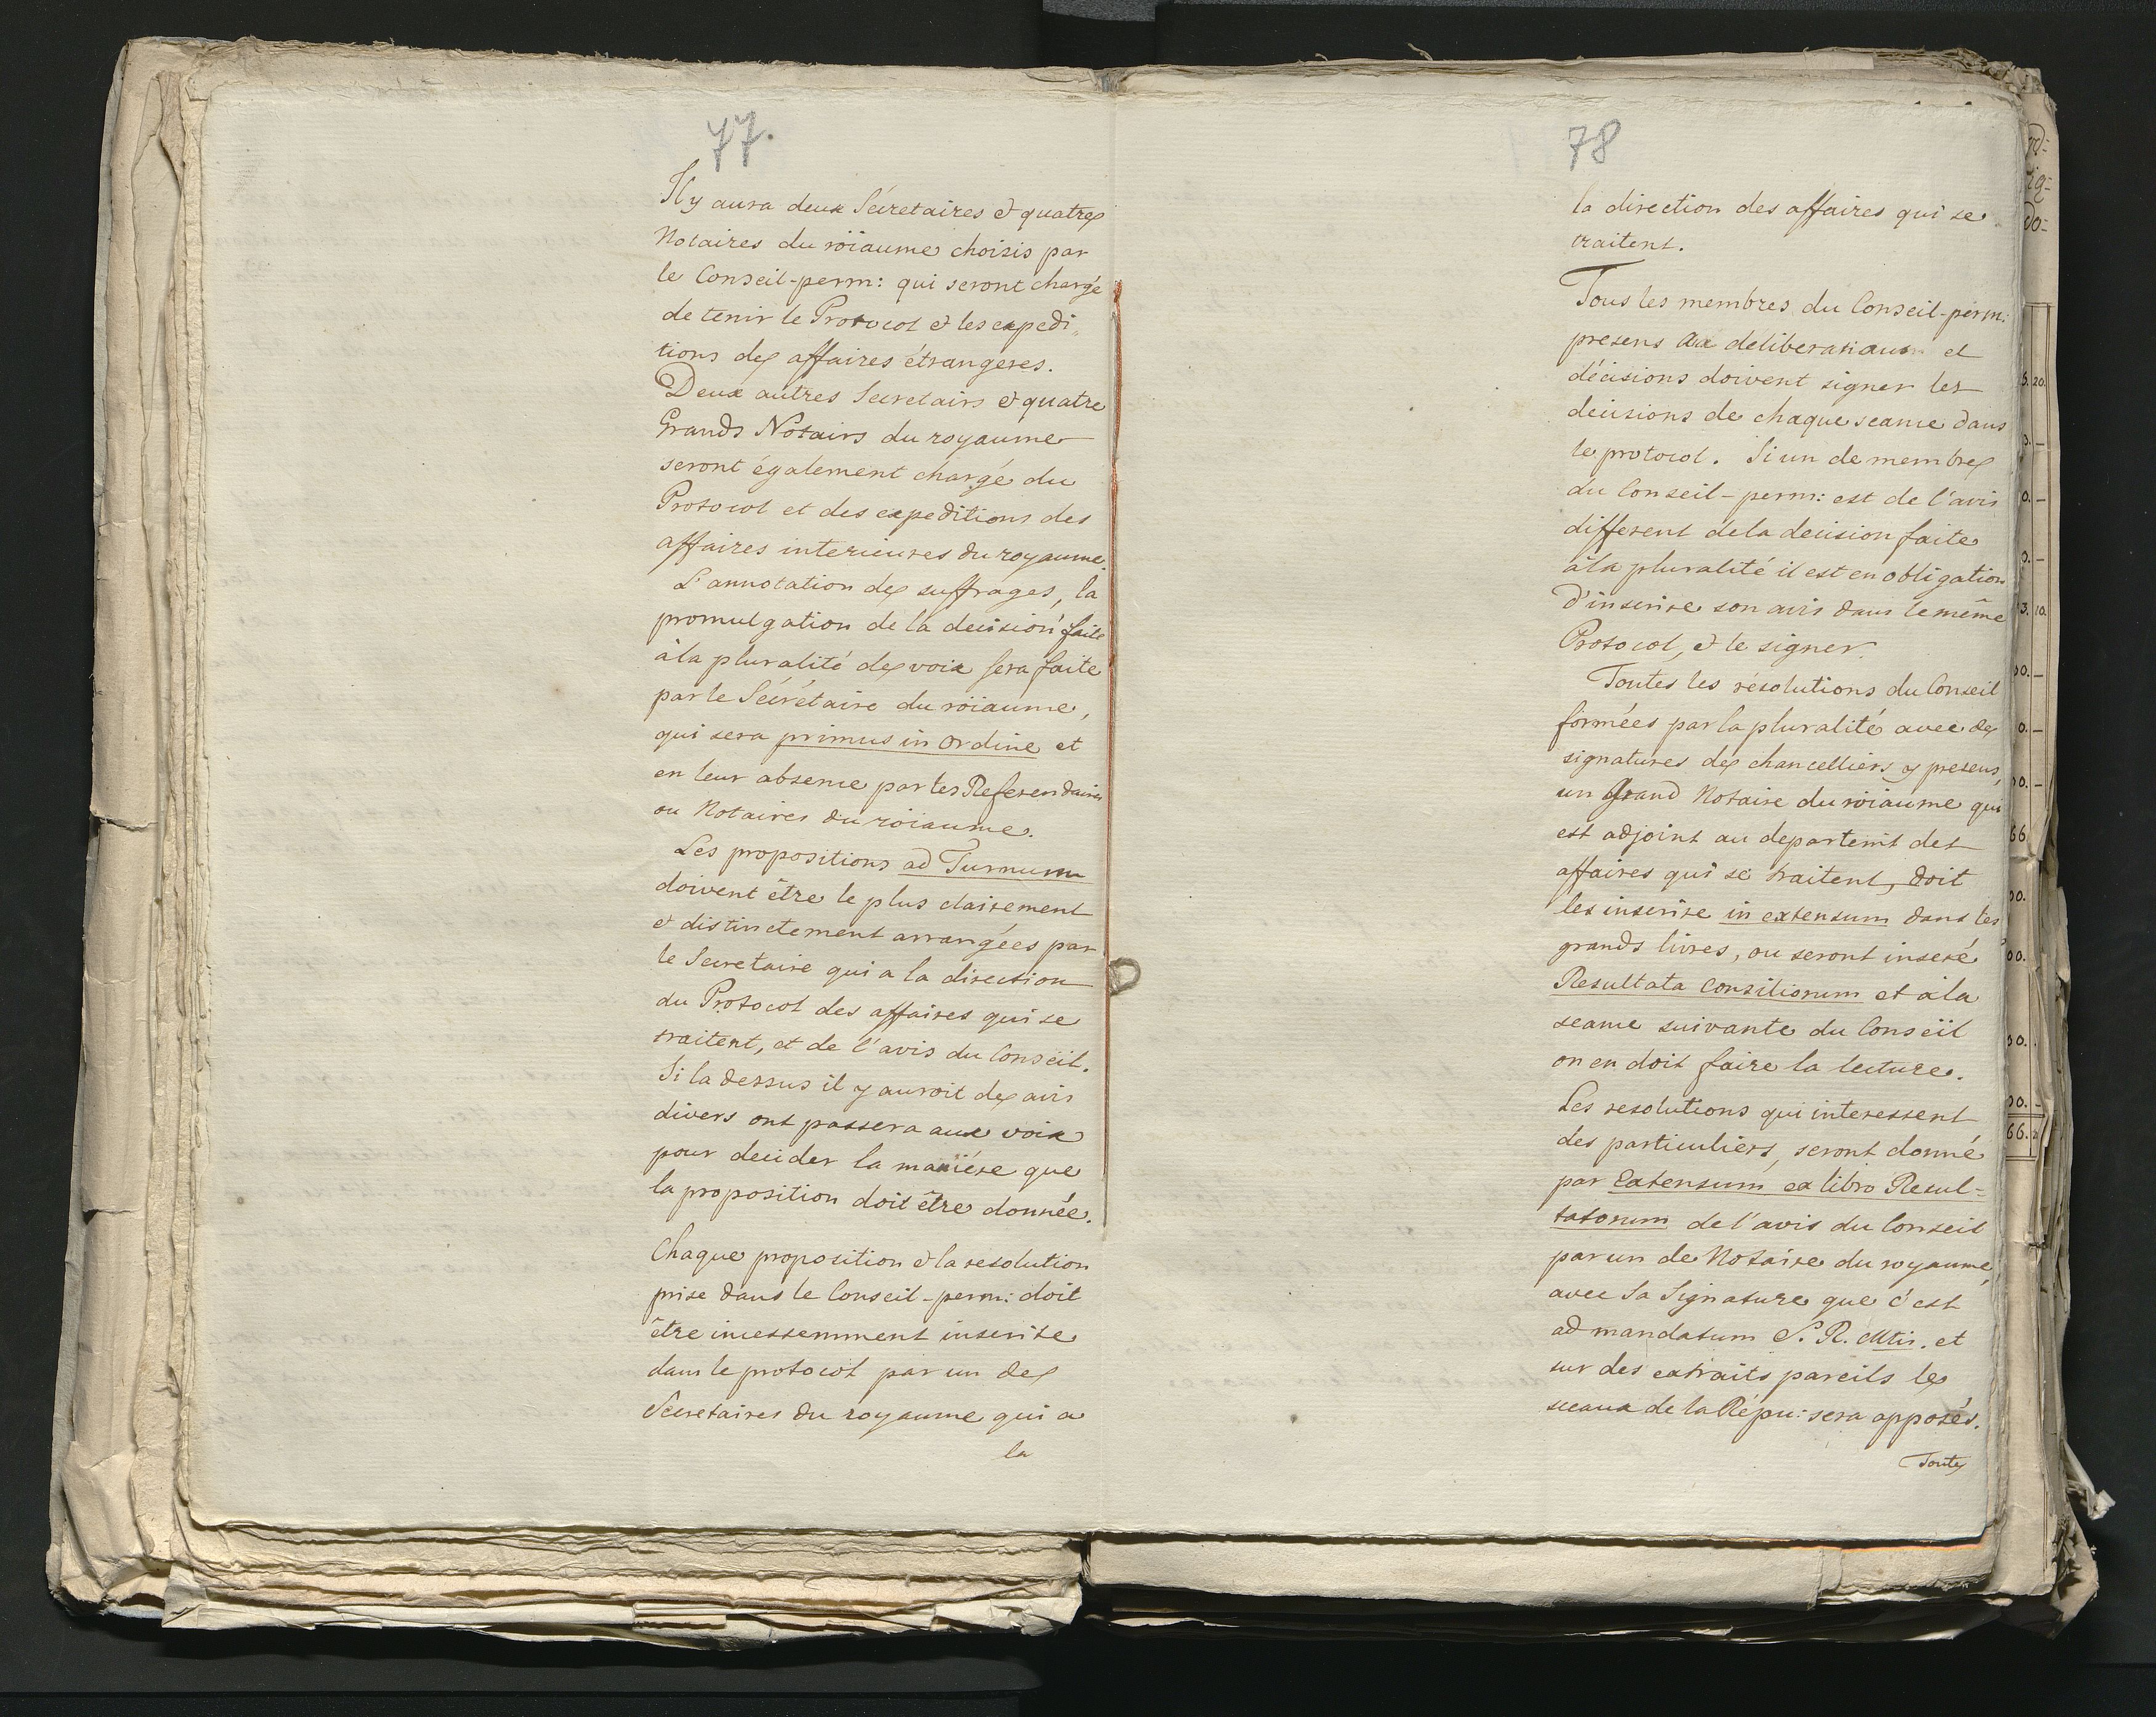 77.
Il y aura deux Sécretaires & quatres
Notaires du röïaume choisis par
le Conseil-perm: qui seront chargé
de tenir le Protocol & les expedi-
tions des affaires étrangeres.
Deux autres Secretairs & quatre
Grands Notairs du royaume
seront également chargé du
Protocol et des expeditions des
affaires interieures du royaume.
L'annotation des suffrages, la
promulgation de la decision faite
à la pluralité des voix sera faite
par le Sécrétaire du röiaume,
qui sera primus in ordine et
en leur absence par les Referendaires
ou Notaires du roiaume.
Les propositions ad Turnum
doivent être le plus clairement
& distinctement arrangées par
le Secretaire qui a la direction
du Protocol des affaires qui se
traitent, et de l'avis du Conseil.
Si la dessus il y auroit des avis
divers ont passera aux voix
pour decider la maniére que
la proposition doit être donnée.
Chaque proposition & la resolution
prise dans le Conseil-perm: doit
être incessemment inscrite
dans le protocol par un des
Secretaires du royaume qui a
la
78
la direction des affaires qui se
traitent.
Tous les membres du Conseil-perm:
presens aux deliberations et
décisions doivent signer les
decisions de chaque seance dans
le protocol. Si un de membres
du Conseil-perm: est de l'avis
different de la decision faite
à la pluralité il est en obligation
d'inscrire son avis dans le même
Protocol, & le signer.
Toutes les résolutions du Conseil
formées par la pluralité avec des
signatures des chancelliers y presens,
un Grand Notaire du röiaume qui
est adjoint au departemt des
affaires qui se traitent, doit
les inscrire in extensum dans les
grands livres, ou seront inseré
Resultata Consiliorum et à la
seance suivante du Conseil
on en doit faire la lecture.
Les resolutions qui interessent
des particuliers, seront donné
par Extensum ex libro Resul-
tatorum de l'avis du Conseil
par un de Notaire du royaume,
avec sa Signature que c'est
ad mandatum S. R. Mtis. et
sur des extraits pareils les
sceaux de la Répu: sera apposés.
Toutes